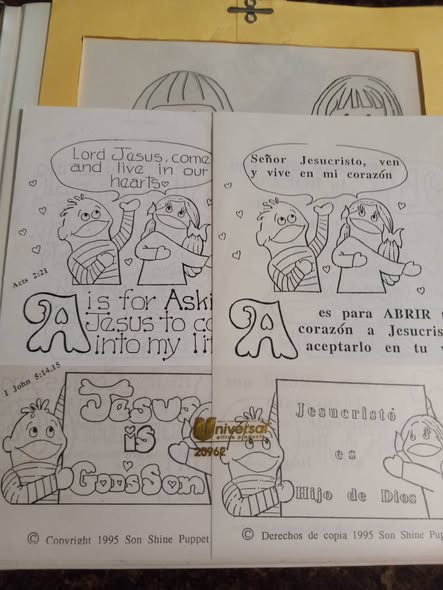 Lord Jesus, come
and live in our
hearts
Acts 2:21
A is for Aski
Jesus to co
into my
1 John 5:14,15
Jesus
is
God's Son
© Copyright 1995 Son Shine Puppet
Señor Jesucristo, ven
y vive en mi corazón
A es para ABRIR
corazón a Jesucris
aceptarlo en tu
Jesucristó
es
Hijo de Dios
© Derechos de copia 1995 Son Shine Pup
Universal
office products
20962